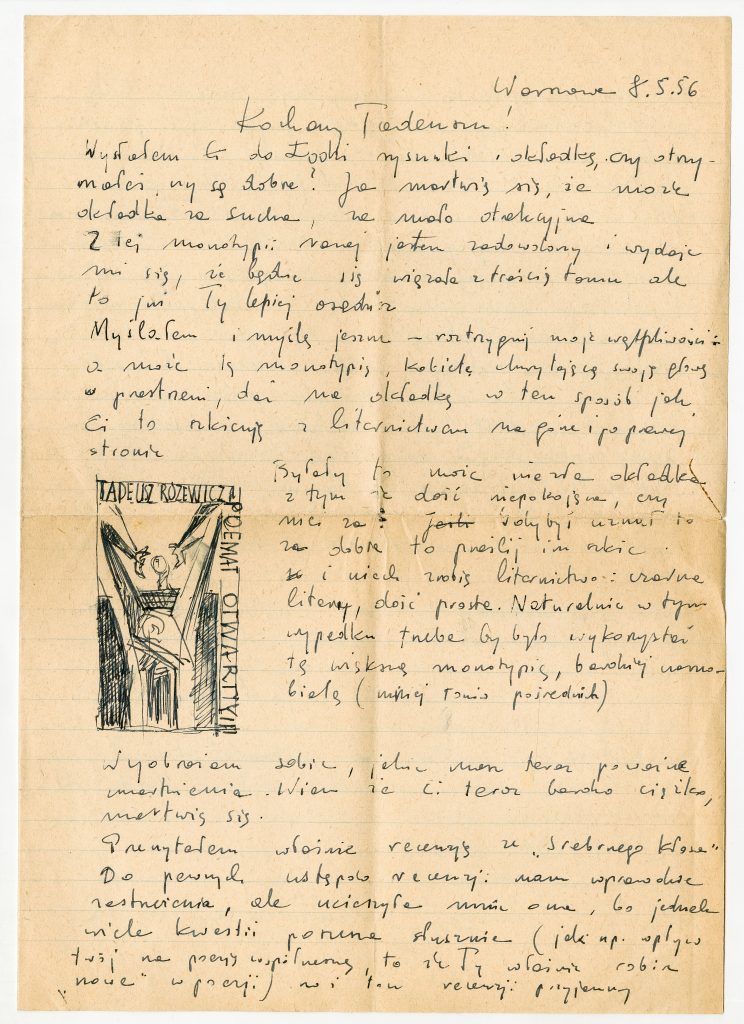 Warszawa 8.5.56
Kochany Tadeuszu!
Wysłałem Ci do Łodzi rysunki i okładkę, czy otrzy-
małeś, czy są dobre? Ja martwię się, że może
okładka za sucha, za mało atrakcyjna
Z tej monotypii raczej jestem zadowolony i wydaje
mi się, że będzie się wiązała z treścią tomu ale
to już Ty lepiej osądzisz
Myślałem i myślę jeszcze – roztrzygnij moje wątpliwości:
a może tą monotypię, kobietę chwytającą swoją głowę
w przestrzeni, dać na okładkę w ten sposób jak
Ci to szkicuję z liternictwem na górze i po prawej
stronie
TADEUSZ RÓŻEWICZ
POEMAT OTWARTY
Byłaby to może niezła okładka
z tym że dość niepokojąca, czy
nie za? jeśli Gdybyś uznał to
za dobre to prześlij im szkic
i niech zrobią liternictwo: czarne
litery, dość proste. Naturalnie w tym
wypadku trzeba by było wykorzystać
tą większą monotypię, bardziej czarno-
białą (mniej tonów pośrednich)
Wyobrażam sobie, jakie masz teraz poważne
zmartwienia. Wiem że Ci teraz bardzo ciężko,
martwię się.
Przeczytałem właśnie recenzję ze „Srebrnego Kłosa"
Do pewnych ustępów recenzji mam wprawdzie
zastrzeżenia, ale ucieszyła mnie ona, bo jednak
wiele kwestii porusza słusznie (jak np. wpływ
twój na poezję współczesną, to że Ty właśnie robisz
„nowe" w poezji) no i ton recenzji przyjemny